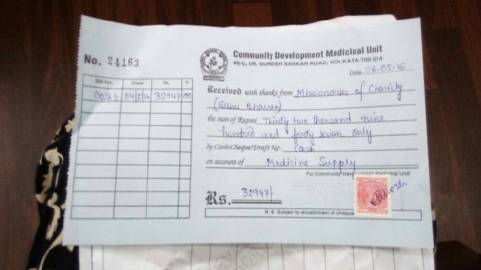 Community Development Medicinal Unit
DR. SURESH SARKAR ROAD, KOLKATA-700 014
No. 24163
Date 06-05-16
Received with thanks from Missionaries of Charity
the sum of Rupees Thirty two thousand nine
hundred and forty seven only
by Cash/Cheque/Draft No. Cash
on account of Medicine Supply
For Community Development
Rs. 32947/-
N. B. Subject to encashment of cheque
32947 00